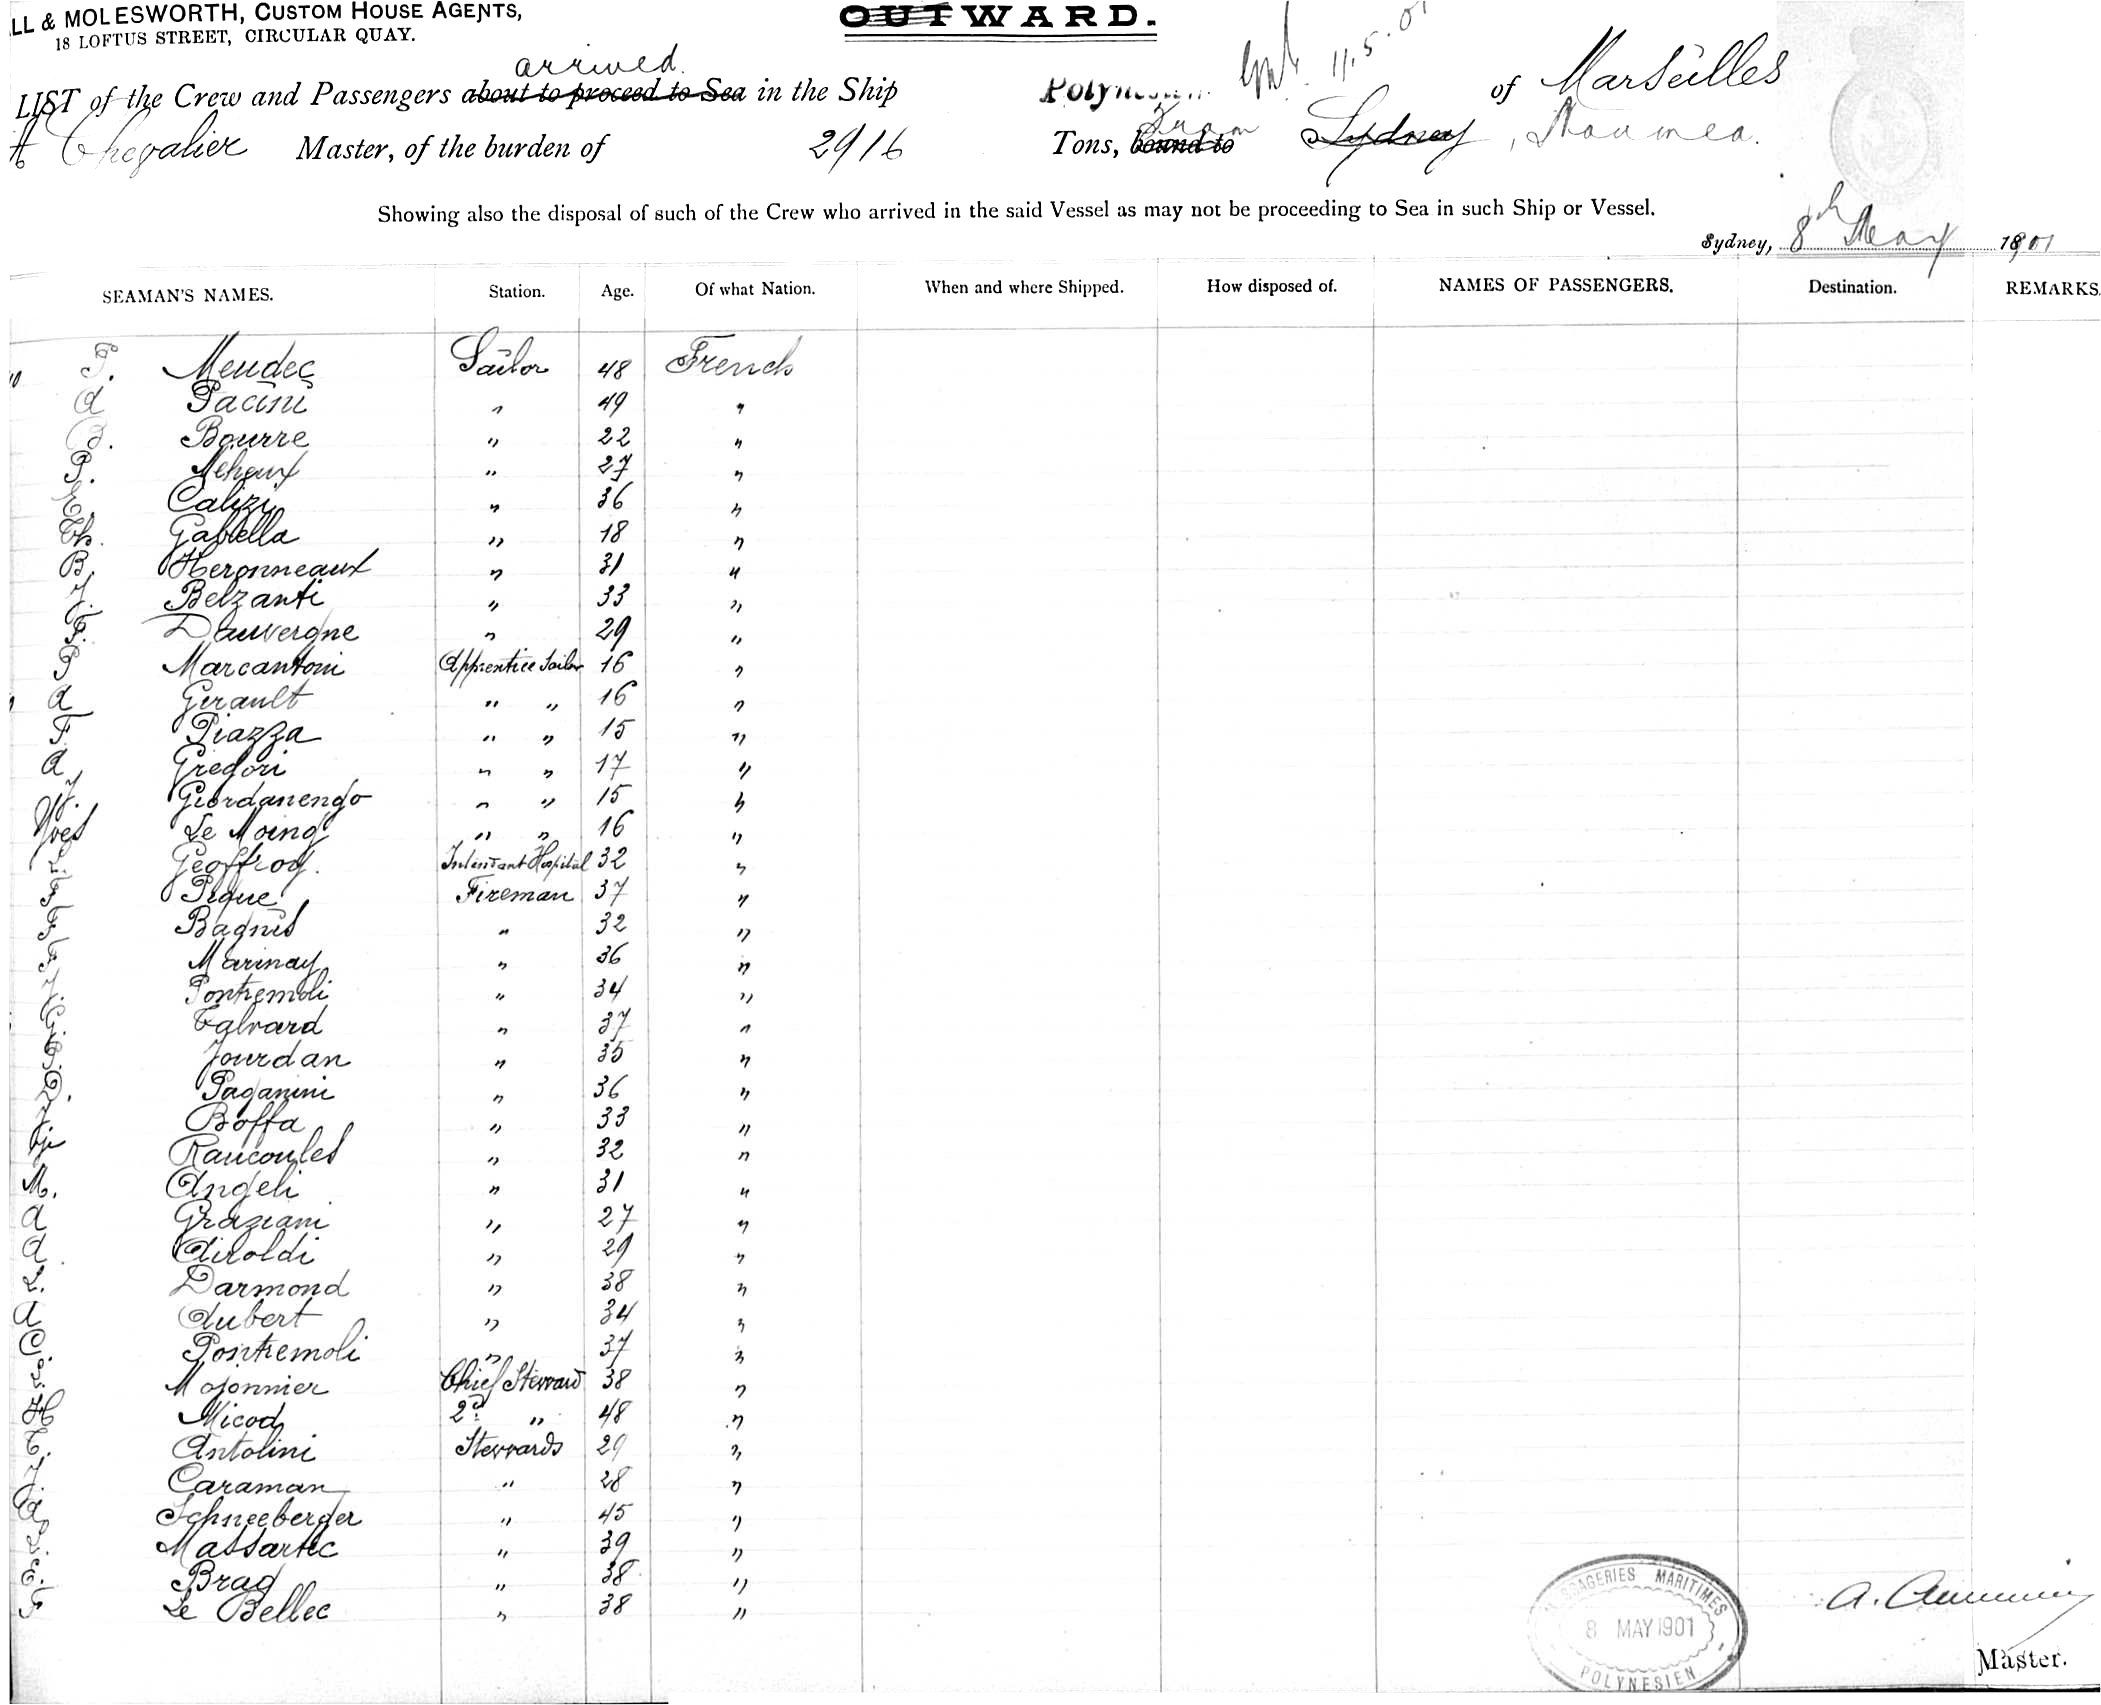 LL & MOLESWORTH, CUSTOM HOUSE AGENTS,
18 LOFTUS STREET, CIRCULAR QUAY.
OUTWARD.
11.5.01
arrived
LIST of the Crew and Passengers about to proceed to Sea in the Ship Polynesien of Marseilles
A Chevalier Master, of the burden of 2916 Tons, bound to from Sydney, Noumea.
Showing also the disposal of such of the Crew who arrived in the said Vessel as may not be proceeding to Sea in such Ship or Vessel.
Sydney, 8th May 1901
SEAMAN'S NAMES. Station. Age. Of what Nation. When and where Shipped. How disposed of. NAMES OF PASSENGERS. Destination. REMARKS.
Meudec Sailor 48 French
A Pacini " 49 "
B. Bourre " 22 "
P. Meheux " 27 "
Calizi " 36 "
Th. Gabella " 18 "
B. Heronneaux " 31 "
J. Belzanti " 33 "
F. Dauvergne " 29 "
P Marcantoni Apprentice Sailor 16 "
A Gerault " " 16 "
F. Piazza " " 15 "
A Gregori " " 17 "
J. Giordanengo " " 15 "
Yves Le Moing " " 16 "
Geoffroy. Intendant Hospital 32 "
Pique Fireman 37 "
F Bagnis " 32 "
Marinay " 36 "
J. Pontremoli " 34 "
Talvard " 37 "
Jourdan " 35 "
D. Paganini " 36 "
J Boffa " 33 "
Raucoules " 32 "
M. Angeli " 31 "
A Graziani " 27 "
A Airoldi " 29 "
L. Darmond " 38 "
A Aubert " 34 "
C Pontremoli " 37 "
L. Mojonnier Chief Steward 38 "
H Micod 2d " 48 "
Antolini Stewards 29 "
J Caraman " 28 "
A Schneeberger " 45 "
L. Massartic " 39 "
E. Brag " 38 "
Le Bellec " 38 "
MESSAGERIES MARITIMES
8 MAY 1901
POLYNESIEN
Master.